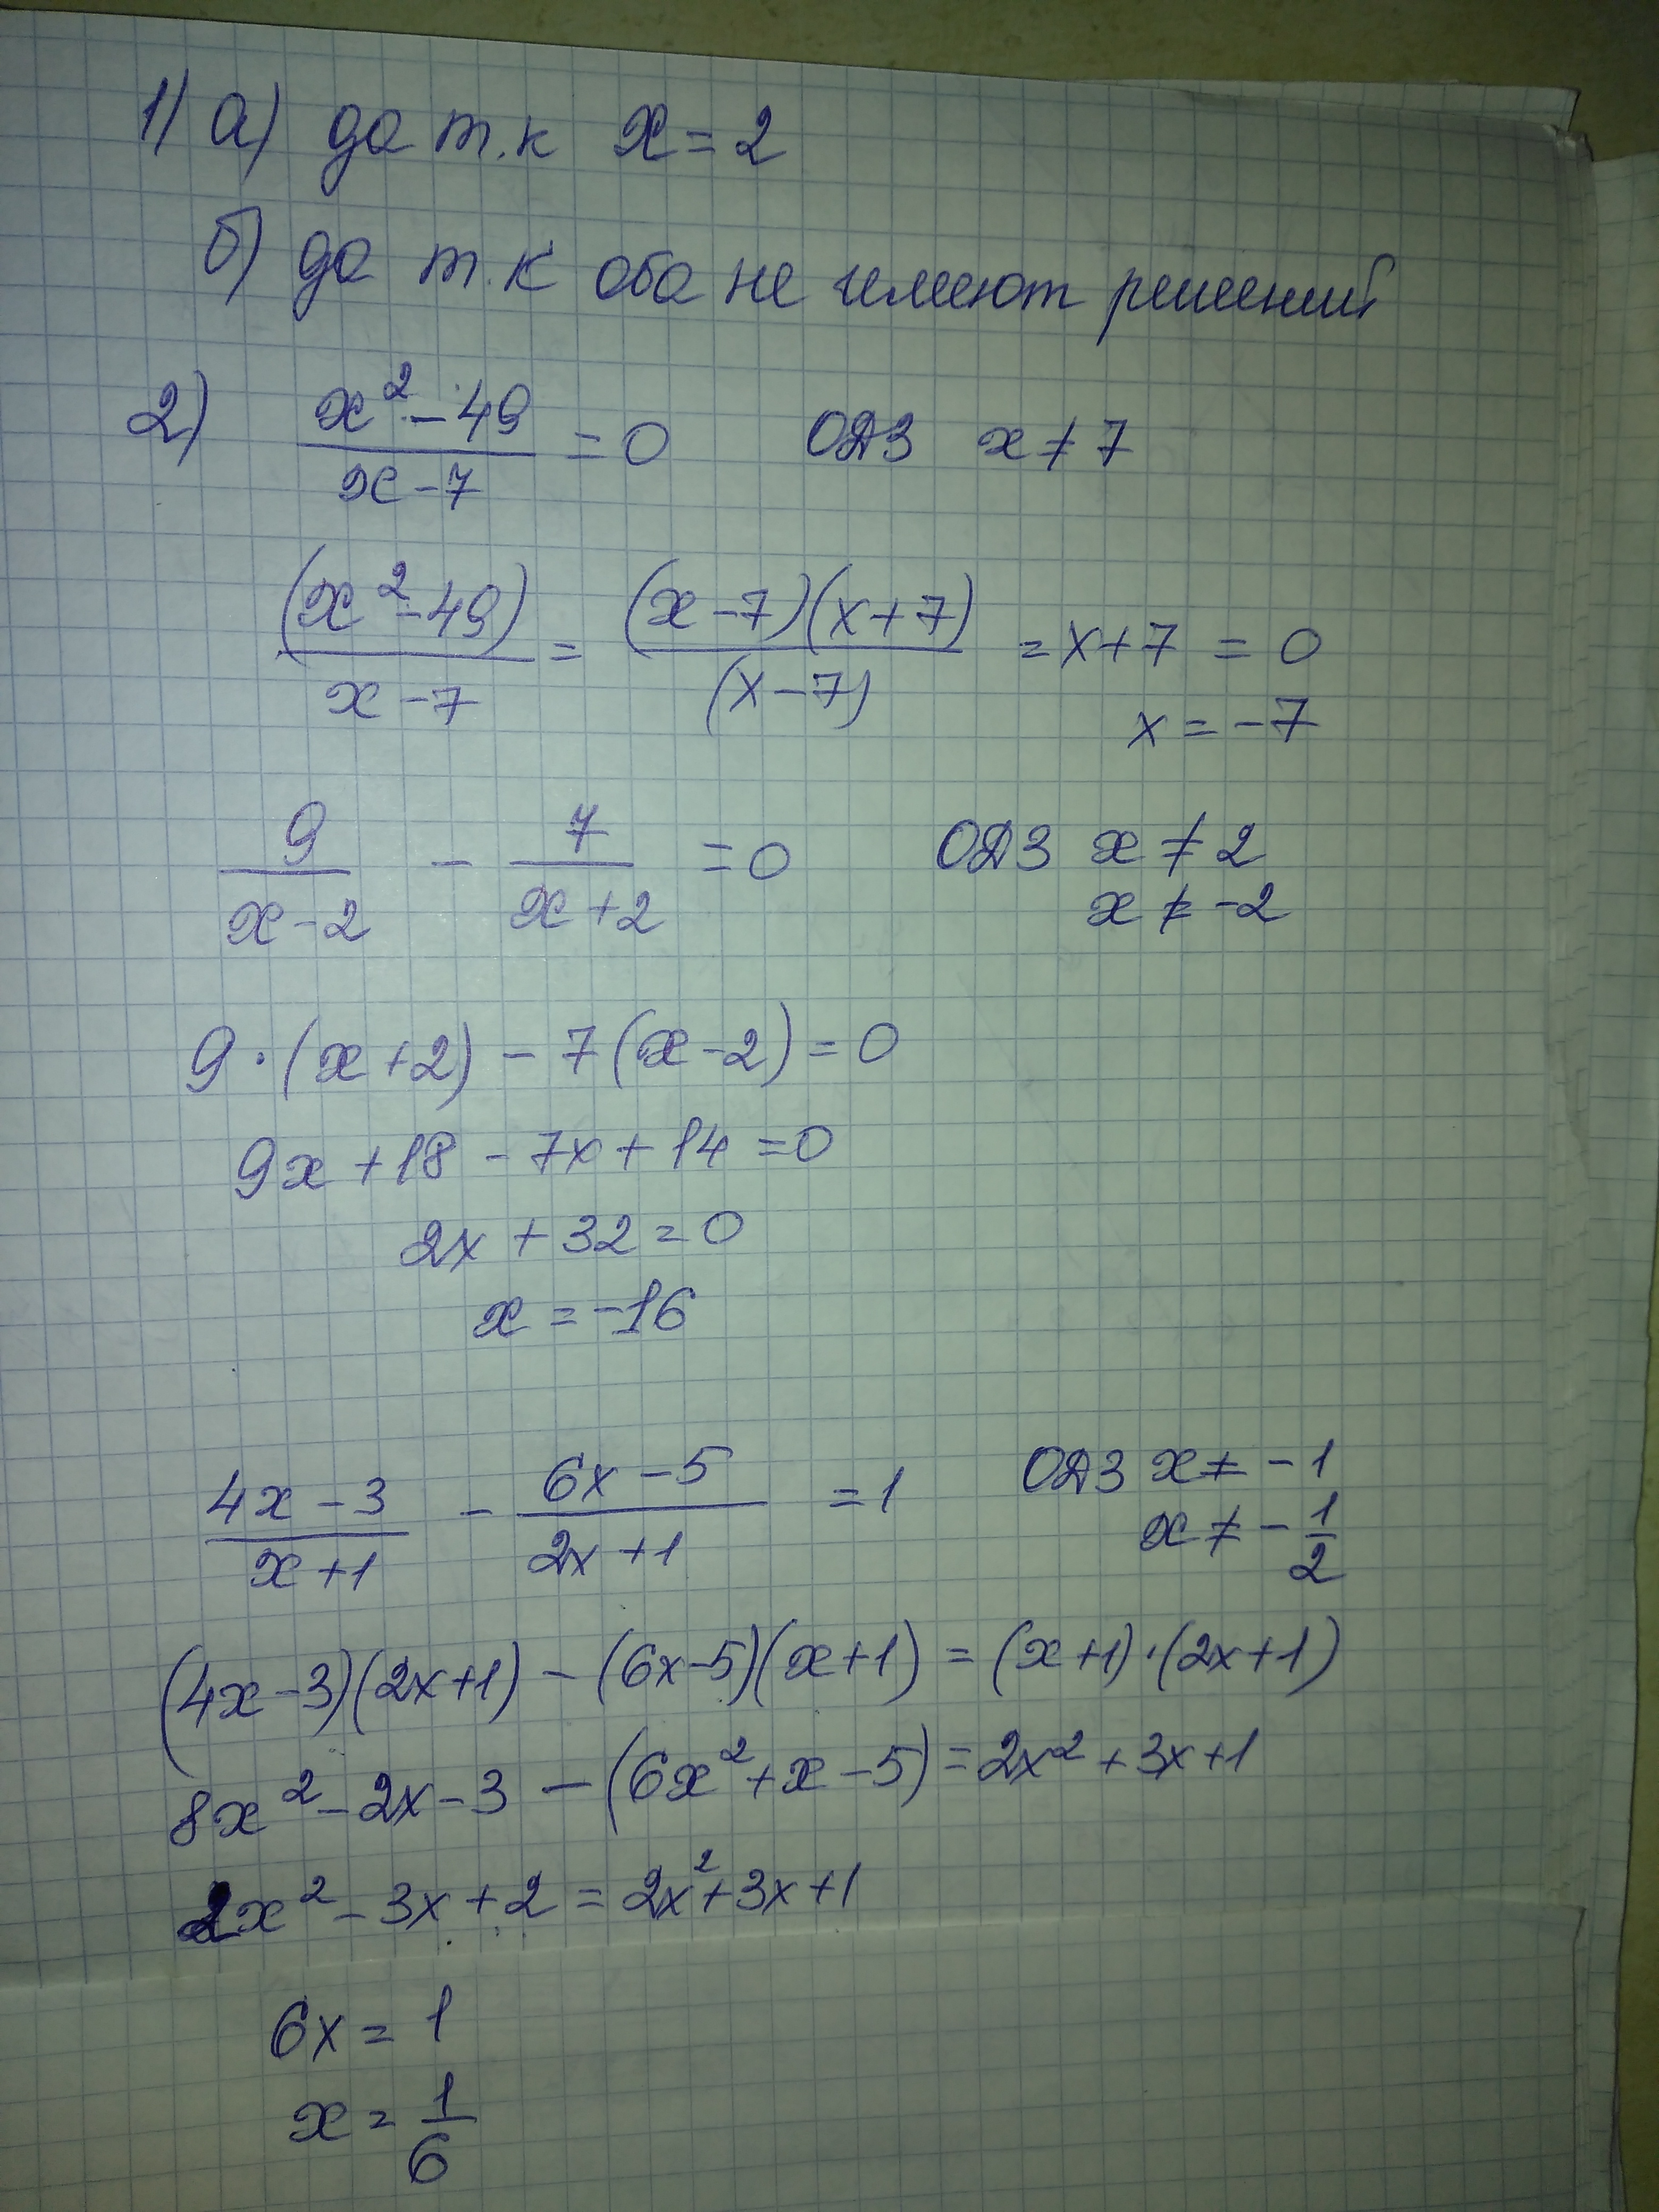 1) а) да т.к x = 2
б) да т.к оба не имеют решений
2) (x² - 49)/(x - 7) = 0 ОДЗ x ≠ 7
(x² - 49)/(x - 7) = (x - 7)(x + 7)/(x - 7) = x + 7 = 0
x = -7
9/(x - 2) - 7/(x + 2) = 0 ОДЗ x ≠ 2
x ≠ -2
9 · (x + 2) - 7(x - 2) = 0
9x + 18 - 7x + 14 = 0
2x + 32 = 0
x = -16
(4x - 3)/(x + 1) - (6x - 5)/(2x + 1) = 1 ОДЗ x ≠ -1
x ≠ -1/2
(4x - 3)(2x + 1) - (6x - 5)(x + 1) = (x + 1) · (2x + 1)
8x² - 2x - 3 - (6x² + x - 5) = 2x² + 3x + 1
2x² - 3x + 2 = 2x² + 3x + 1
6x = 1
x = 1/6